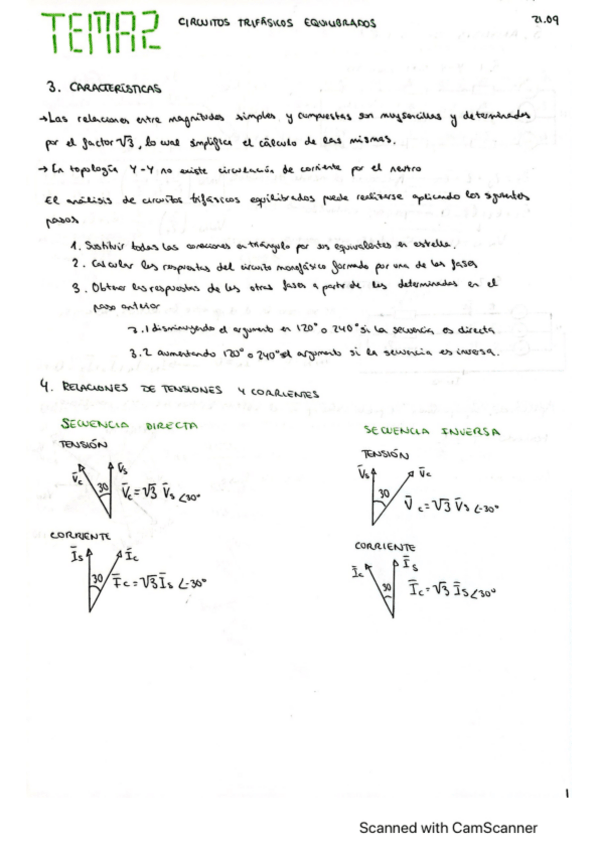 TEMA 2 CIRCUITOS TRIFÁSICOS EQUILIBRADOS 21.09
3. CARACTERÍSTICAS
→Las relaciones entre magnitudes simples y compuestas son muy sencillas y determinadas
por el factor √3, lo cual simplifica el cálculo de las mismas.
→ En topología Y-Y no existe circulación de corriente por el neutro
El análisis de circuitos trifásicos equilibrados puede realizarse aplicando los siguientes
pasos
1. Sustituir todas las conexiones en triángulo por sus equivalentes en estrella.
2. Calcular las respuestas del circuito monofásico formado por una de las fases
3. Obtener las respuestas de las otras fases a partir de las determinadas en el
paso anterior
3.1 disminuyendo el argumento en 120° o 240° si la secuencia es directa
3.2 aumentando 120° o 240° el argumento si la secuencia es inversa.
4. RELACIONES DE TENSIONES Y CORRIENTES
SECUENCIA DIRECTA
TENSIÓN
V̄c V̄s
30 V̄c = √3 V̄s ∠30°
CORRIENTE
Īs Īc
30 Īc = √3 Īs ∠-30°
SECUENCIA INVERSA
TENSIÓN
V̄s V̄c
30 V̄c = √3 V̄s ∠-30°
CORRIENTE
Īc Īs
30 Īc = √3 Īs ∠30°
1
Scanned with CamScanner